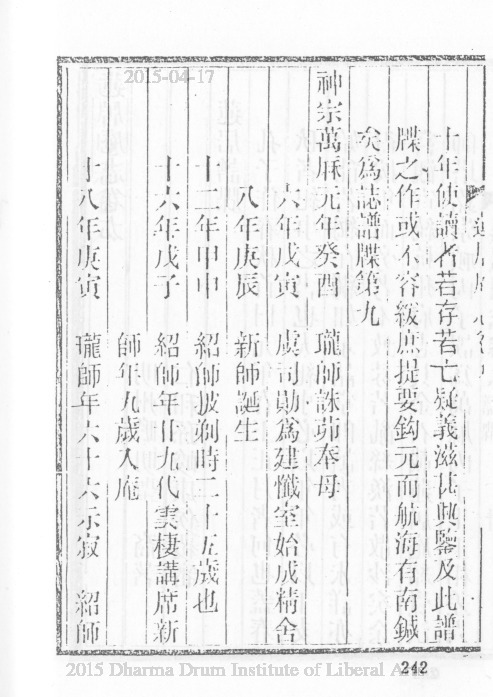 2015-04-17
十年使讀者若存若亡疑義滋甚興鑒及此譜
牒之作或不容緩庶提要鈎元而航海有南鍼
矣爲誌譜牒第九
神宗萬厤元年癸酉 瓏師誅茆奉母
六年戊寅 虞司勛爲建懺室始成精舍
八年庚辰 新師誕生
十二年甲申 紹師披剃時二十五歲也
十六年戊子 紹師年廿九代雲棲講席新
師年九歲入庵
十八年庚寅 瓏師年六十六示寂 紹師
2015 Dharma Drum Institute of Liberal A
242